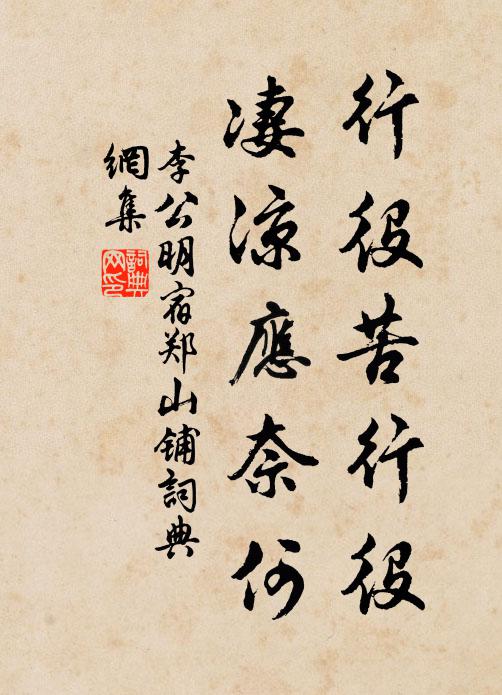 行役苦行役
凄凉應奈何
李公明宿郑山铺詞典
網集
詞典
网印